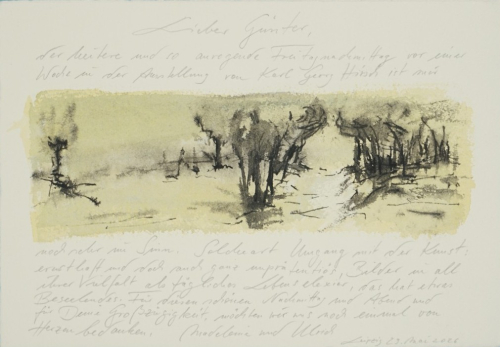 Lieber Günter,
der heitere und so anregende Freitagnachmittag vor einer
Woche in der Ausstellung von Karl Georg Hirsch ist mir
noch sehr im Sinn. Solche Art Umgang mit der Kunst:
ernsthaft und doch auch ganz unprätentiös, Bilder in all
ihrer Vielfalt als tägliches Lebenselixier, das hat etwas
Beseelendes. Für diesen schönen Nachmittag und Abend und
für Deine Großzügigkeit, möchten wir uns noch einmal von
Herzen bedanken. Madeleine und
Mai